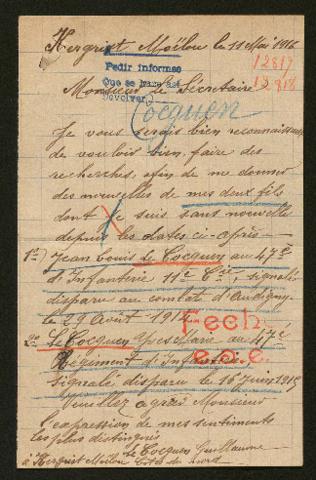 Kergrist Moëlou le 11 Mai 1916
Pedir informes
Que se haga así
Devolver
12817
12818
Monsieur le Secrétaire
Cocquen
Je vous serais bien reconnaissant
de vouloir bien faire des
recherches, afin de me donner
des nouvelles de mes deux fils
dont je suis sans nouvelle
depuis les dates ci-après
1º) Jean Louis Le Cocquen au 47e
d'Infanterie 11e Cie, signalé
disparu au combat d'
le 29 Août 1914
Fech
2º Le Cocquen Yves Marie au 47e
Régiment d'Infanterie
e.a.e.
Signalé disparu le 16 Juin 1915
Veuillez agréer Monsieur
l'expression de mes sentiments
les plus distingués
Le Cocquen Guillaume
à Kergrist Moëlou Côtes du Nord